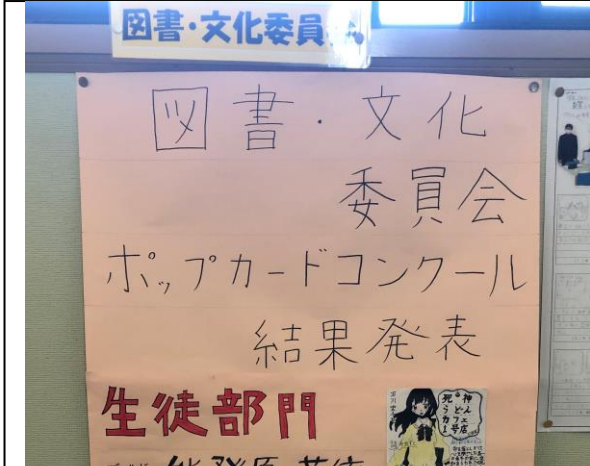 図書・文化委員
図書・文化
委員会
ポップカードコンクール
結果発表
生徒部門